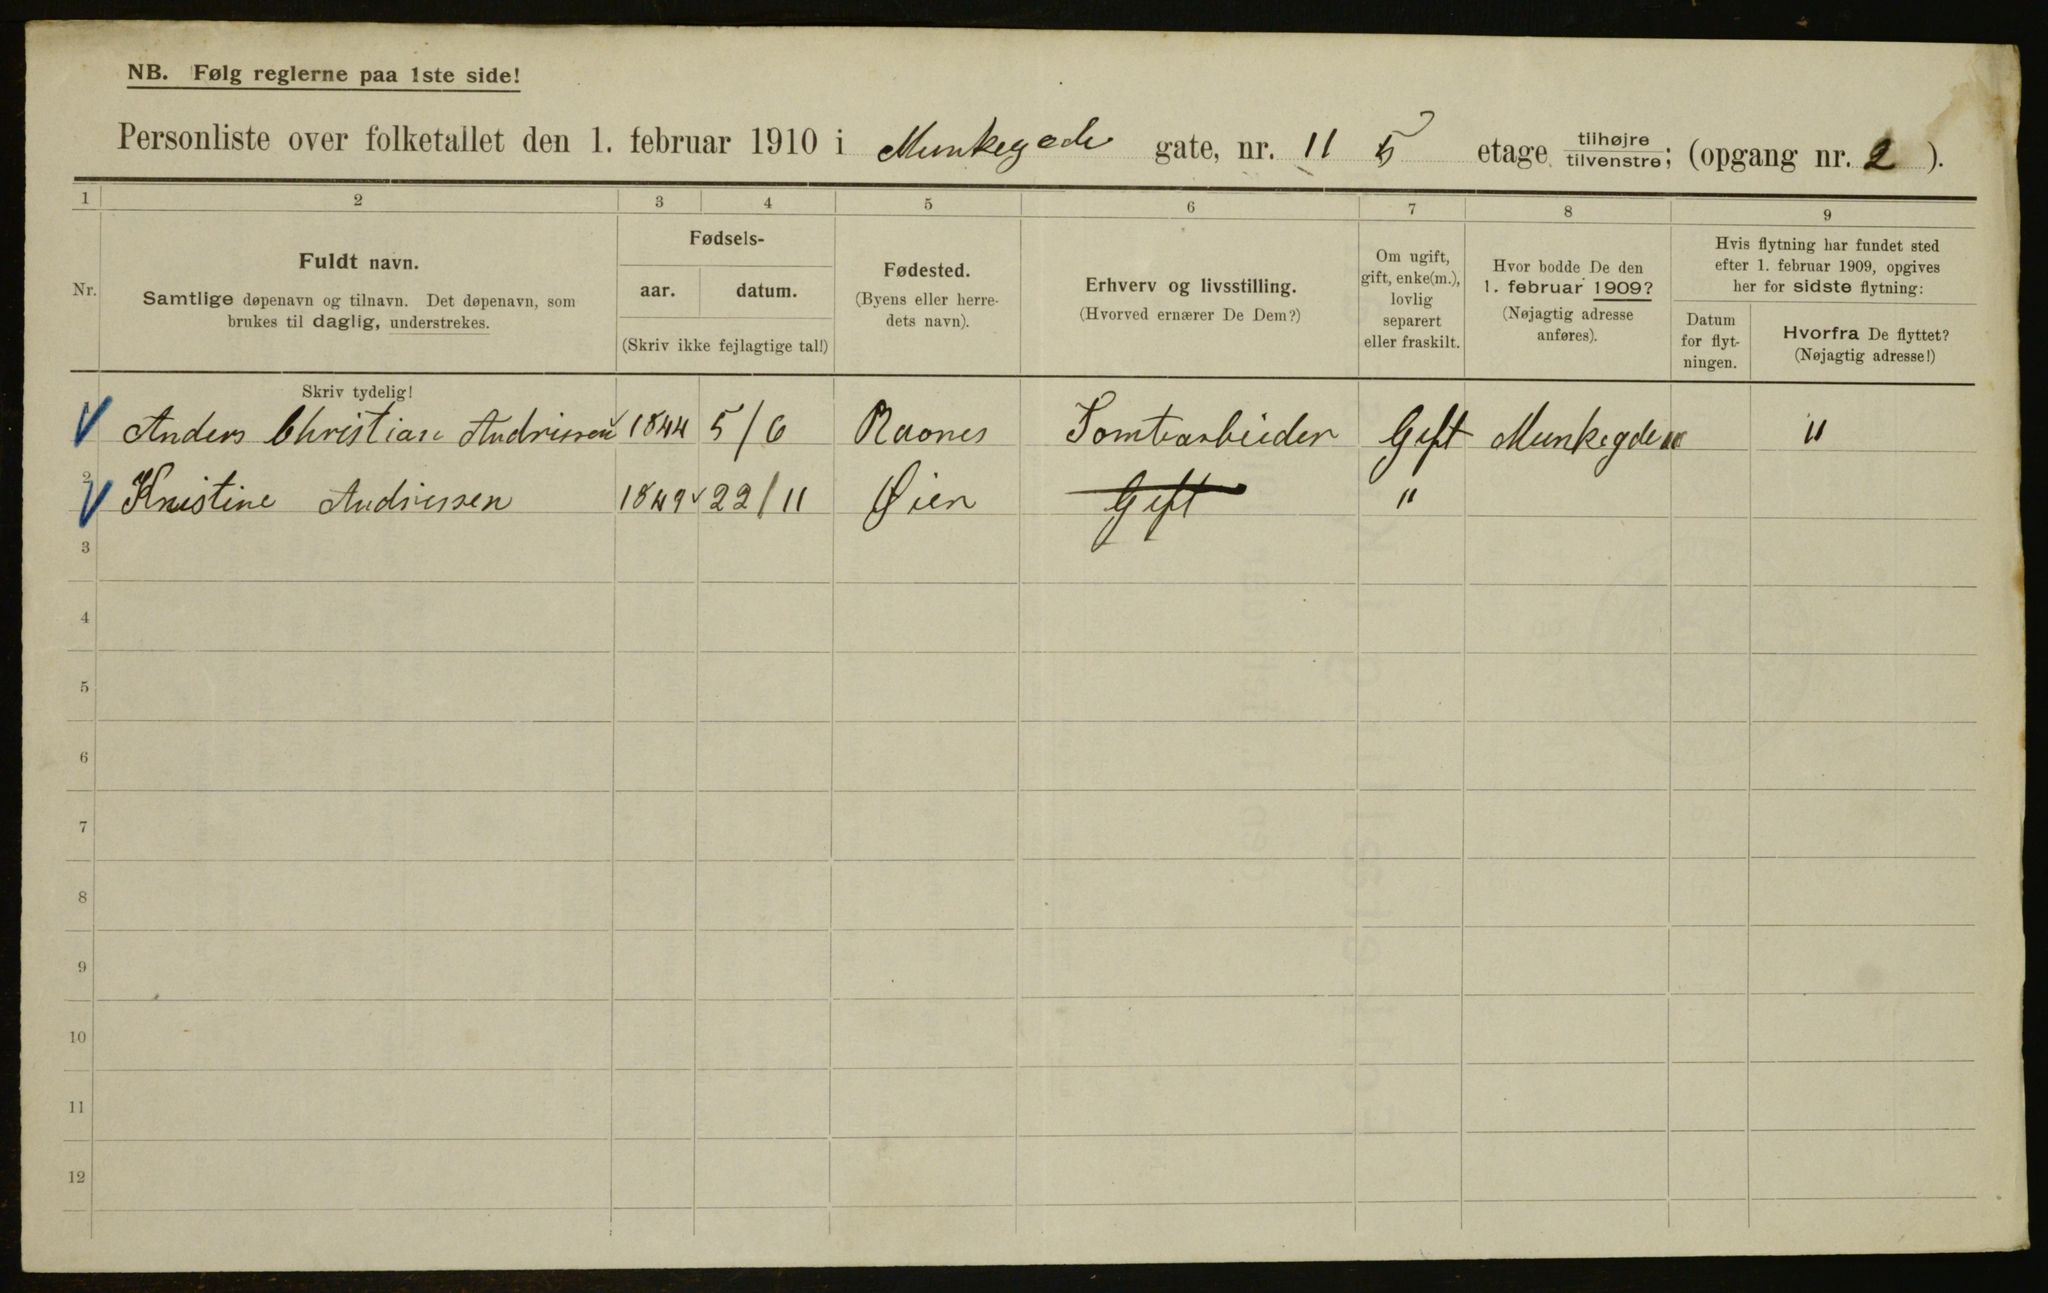 NB. Følg reglerne paa 1ste side!
Personliste over folketallet den 1. februar 1910 i Munkegade gate, nr. 11 5 etage tilhøjre tilvenstre; (opgang nr. 2 ).
1 2 3 4 5 6 7 8 9
Nr.
Fuldt navn.
Samtlige døpenavn og tilnavn. Det døpenavn, som
brukes til daglig, understrekes.
Fødsels-
aar. datum.
(Skriv ikke fejlagtige tal!)
Fødested.
(Byens eller herre-
dets navn).
Erhverv og livsstilling.
(Hvorved ernærer De Dem?)
Om ugift,
gift, enke(m.),
lovlig
separert
eller fraskilt.
Hvor bodde De den
1. februar 1909?
(Nøjagtig adresse
anføres).
Hvis flytning har fundet sted
efter 1. februar 1909, opgives
her for sidste flytning:
Datum
for flyt-
ningen.
Hvorfra De flyttet?
(Nøjagtig adresse!)
Skriv tydelig!
Anders Christian Andriesen 1844 5/6 Raones Tomtearbeider Gift Munkegde 11 "
2 Kristine Andriessen 1849 22/11 Øien Gift "
3
4
5
6
7
8
9
10
11
12